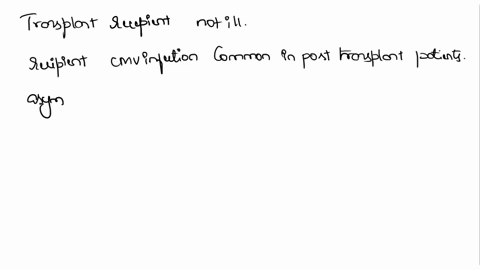 Transplant recipient not ill.
recipient CMV infection Common in post transplant patients.
asym